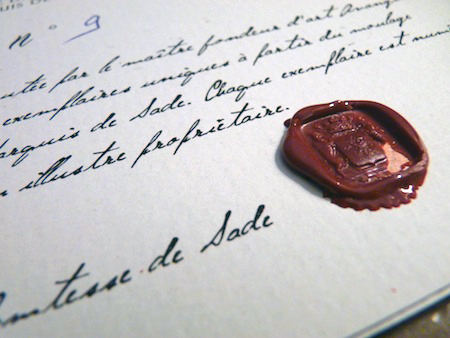 UIS DE
N° 9
utée par le maître fondeur d'art
exemplaires uniques à partir du moulage
arquis de Sade. Chaque exemplaire est numé
illustre propriétaire.
omtesse de Sade